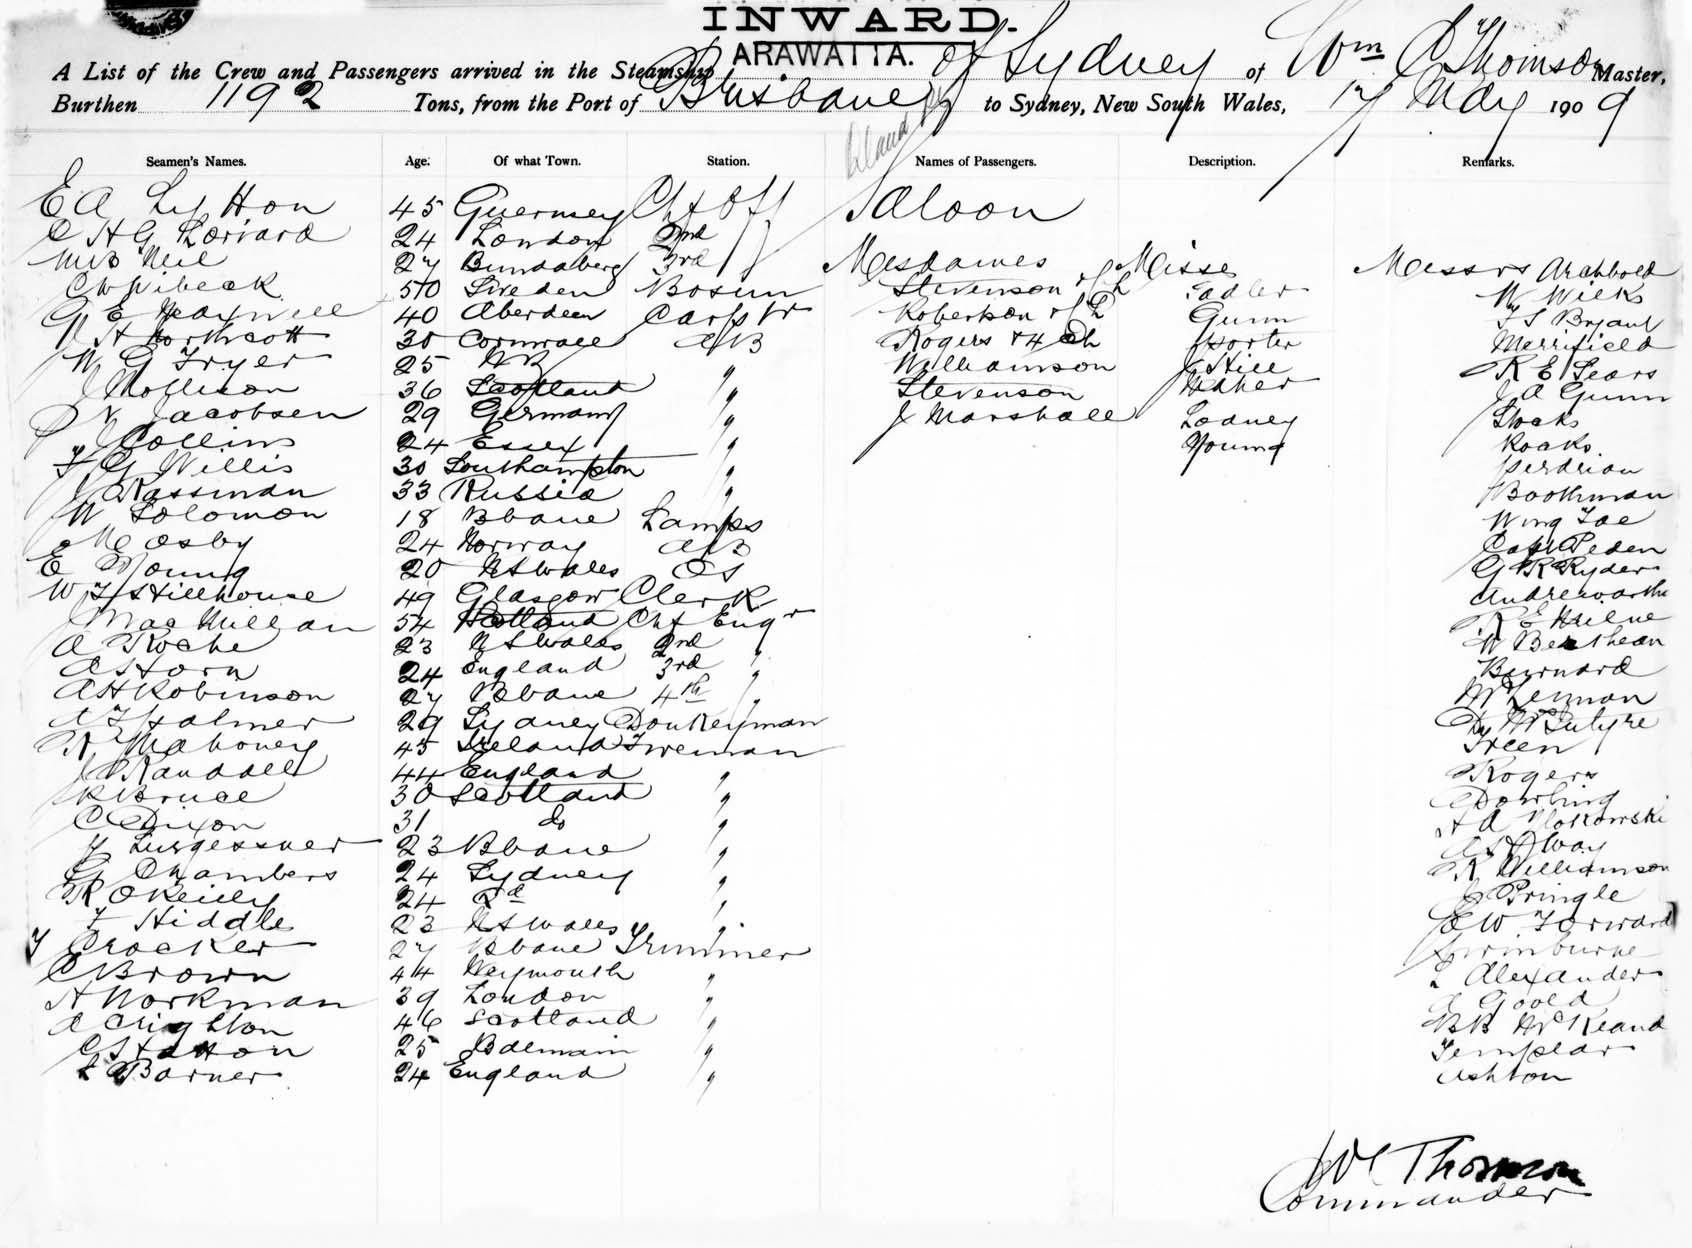 INWARD.
ARAWATTA.
A List of the Crew and Passengers arrived in the Steamship of Sydney of Wm C Thomson Master,
Burthen 1192 Tons, from the Port of Brisbane to Sydney, New South Wales, 17 May 1909
Seamen's Names. Age. Of what Town. Station. Names of Passengers. Description. Remarks.
E A 45 Guernsey Chf Off Saloon
C H G 24 London 2nd
Neil 27 Bundaberg 3rd Mesdames Misses Messrs Archbold
C 50 Sweden Bosun Stevenson Sadler W Wilks
G E Maxwell 40 Aberdeen Carptr Robertson Gunn T S Bryant
H Northcott 30 Cornwall AB Rogers + 4 Ch Porter Merrifield
W G Fryer 25 NB " Williamson Hill R E Sears
J Mollison 36 Scotland " Stevenson Maher J A Gunn
N Jacobsen 29 Germany " J Marshall Lodney Stocks
J Collins 24 Essex " Young Rooks
F G Willis 30 Southampton " Perdriau
J Rassman 33 Russia " Boothman
W Solomon 18 Bbane Lamps Wing
M Osby 24 Norway AB Capt Peden
E Young 20 NSWales OS G R Ryder
W F Hillhouse 49 Glasgow Clerk
J MacMillan 54 Scotland Chf Engr R E Milne
A Roche 23 NSWales 2nd " W
A Horn 24 England 3rd " Barnard
A H Robinson 27 Bbane 4th " McLennan
29 Sydney Donkeyman Dr McIntyre
R Mahoney 45 Ireland Fireman Green
J Randall 44 England " Rogers
R Bruce 30 Scotland " Dowling
C Dixon 31 do "
23 Bbane " Way
G Chambers 24 Sydney " R Williamson
R OReilly 24 Do " J Pringle
F Hiddle 23 NSWales " E W Forward
T Crocker 27 Bbane Trimmer Swinburne
C Brown 44 Weymouth " L Alexander
H Workman 39 London " A Goold
A Crighton 46 Scotland " McKeand
C 25 Balmain " Templar
Barner 24 England " Ashton
W C Thomson
Commander